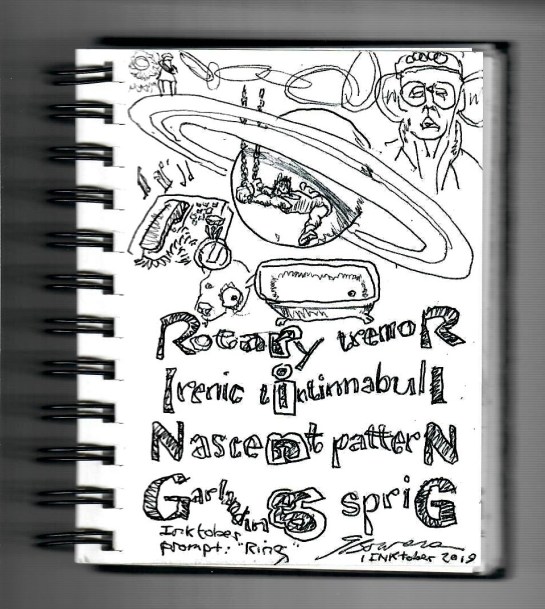 RotaRy tremoR
Irenic tintinnabulI
NasceNt patterN
GarlandinG spriG
Inktober
prompt: "Ring"
1 INKtober 2019